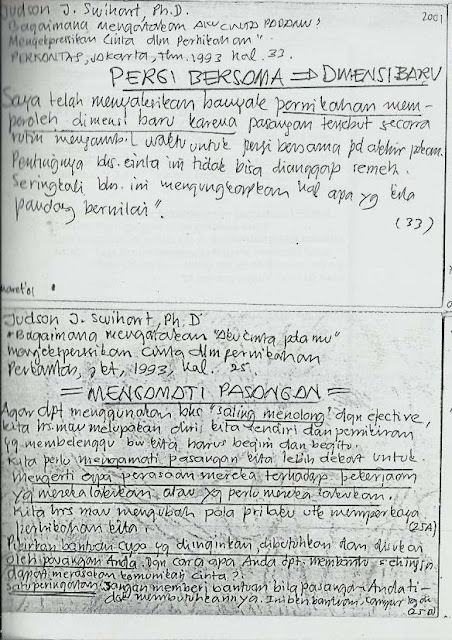 Judson J. Swihart, Ph.D.
2001
Bagaimana mengatakan AKU CINTA PADAMU?
Mengekpresikan Cinta dlm Perhikahan"
PERKANTAS, Jakarta, Thn. 1993 hal. 33.
PERGI BERSAMA ⇒ DIMENSI BARU
Saya telah menyaksikan banyak pernikahan mem-
peroleh dimensi baru karena pasangan tersebut secara
rutin mengambil waktu untuk pergi bersama pd akhir pekan.
Pentingnya bhs. cinta ini tidak bisa dianggap remeh.
Seringkali bhs. ini mengungkapkan hal apa yg kita
pandang bernilai".
(33)
maret'01
Judson J. Swihart, Ph.D
"Bagaimana mengatakan "Aku cinta pdamu"
mengekpresikan cinta dlm pernikahan
Perkantas, jkt, 1993, hal. 25.
= MENGAMATI PASANGAN =
Agar dpt menggunakan bhs "saling menolong" dgn efective,
kita hrs mau melupakan diri kita sendiri dan pemikiran
yg membelenggu bhw kita harus begini dan begitu.
Kita perlu mengamati pasangan kita lebih dekat untuk
mengerti apa perasaan mereka terhadap pekerjaan
yg mereka lakukan atau yg perlu mereka lakukan.
Kita hrs mau mengubah pola prilaku utk memperkaya
pernikahan kita.
(25A)
Pikirkan bantuan apa yg diinginkan, dibutuhkan dan disukai
oleh pasangan Anda. Dgn cara apa Anda dpt membantu sehingga
dapat merasakan komunikasi cinta?
Satu peringatan: Jangan memberi bantuan bila pasangan Anda ti-
dak membutuhkannya. Ini bkn bantuan, campur
(25B)